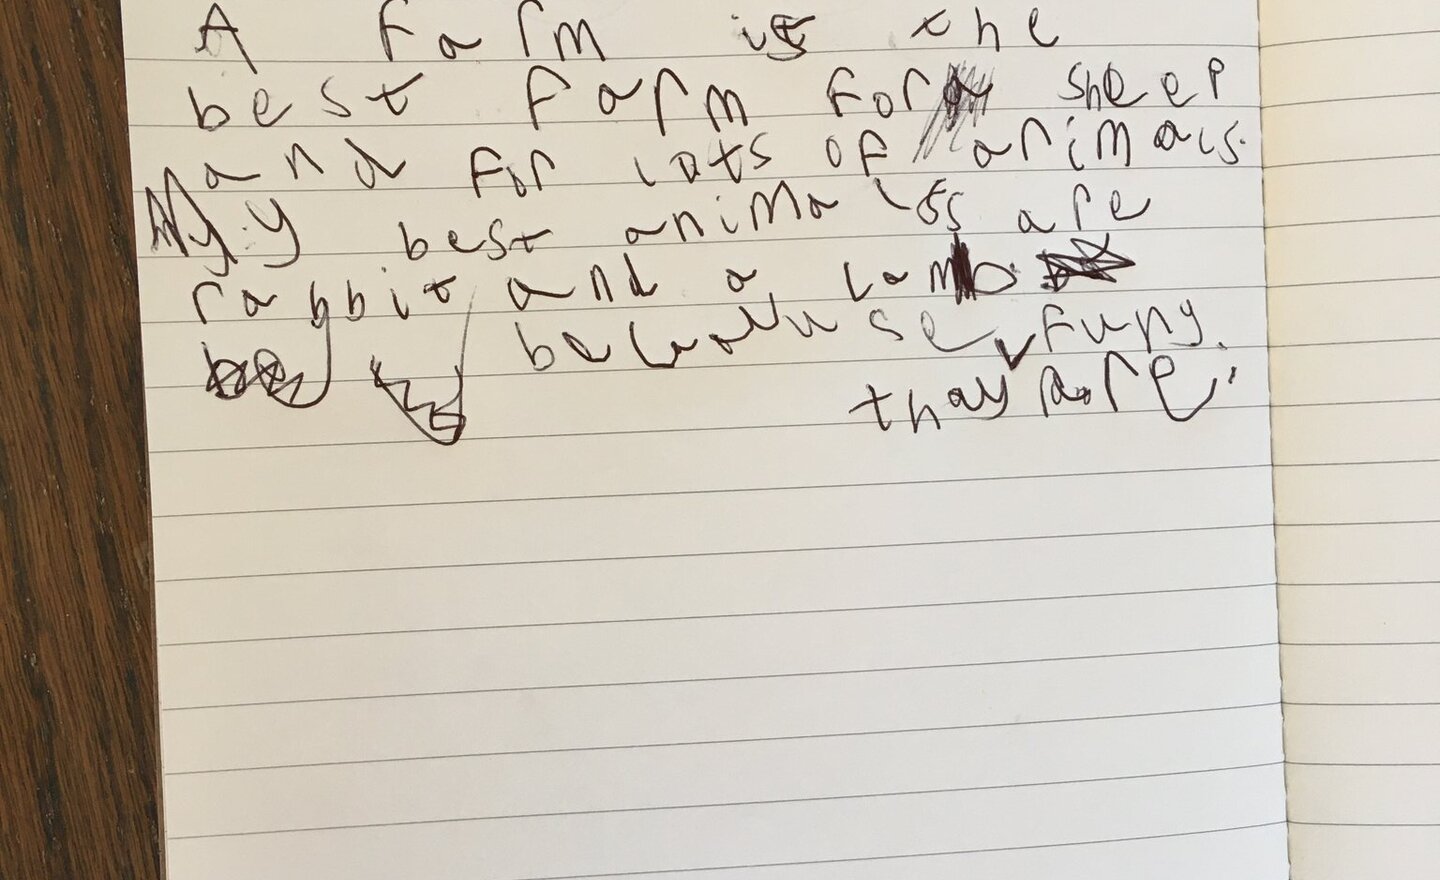 A farm is the
best farm for sheep
and for lots of animals.
My best animals are
rabbit and a lamb.
because funy.
thay are